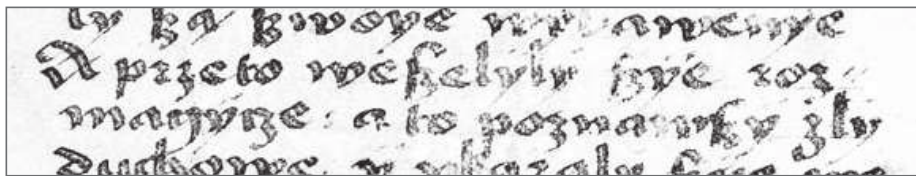 ly ßą ßwoye awenye
A przeto weßelyly ßye roz
magycze : a to poznawßy zly
duchowe y vkazaly ßye